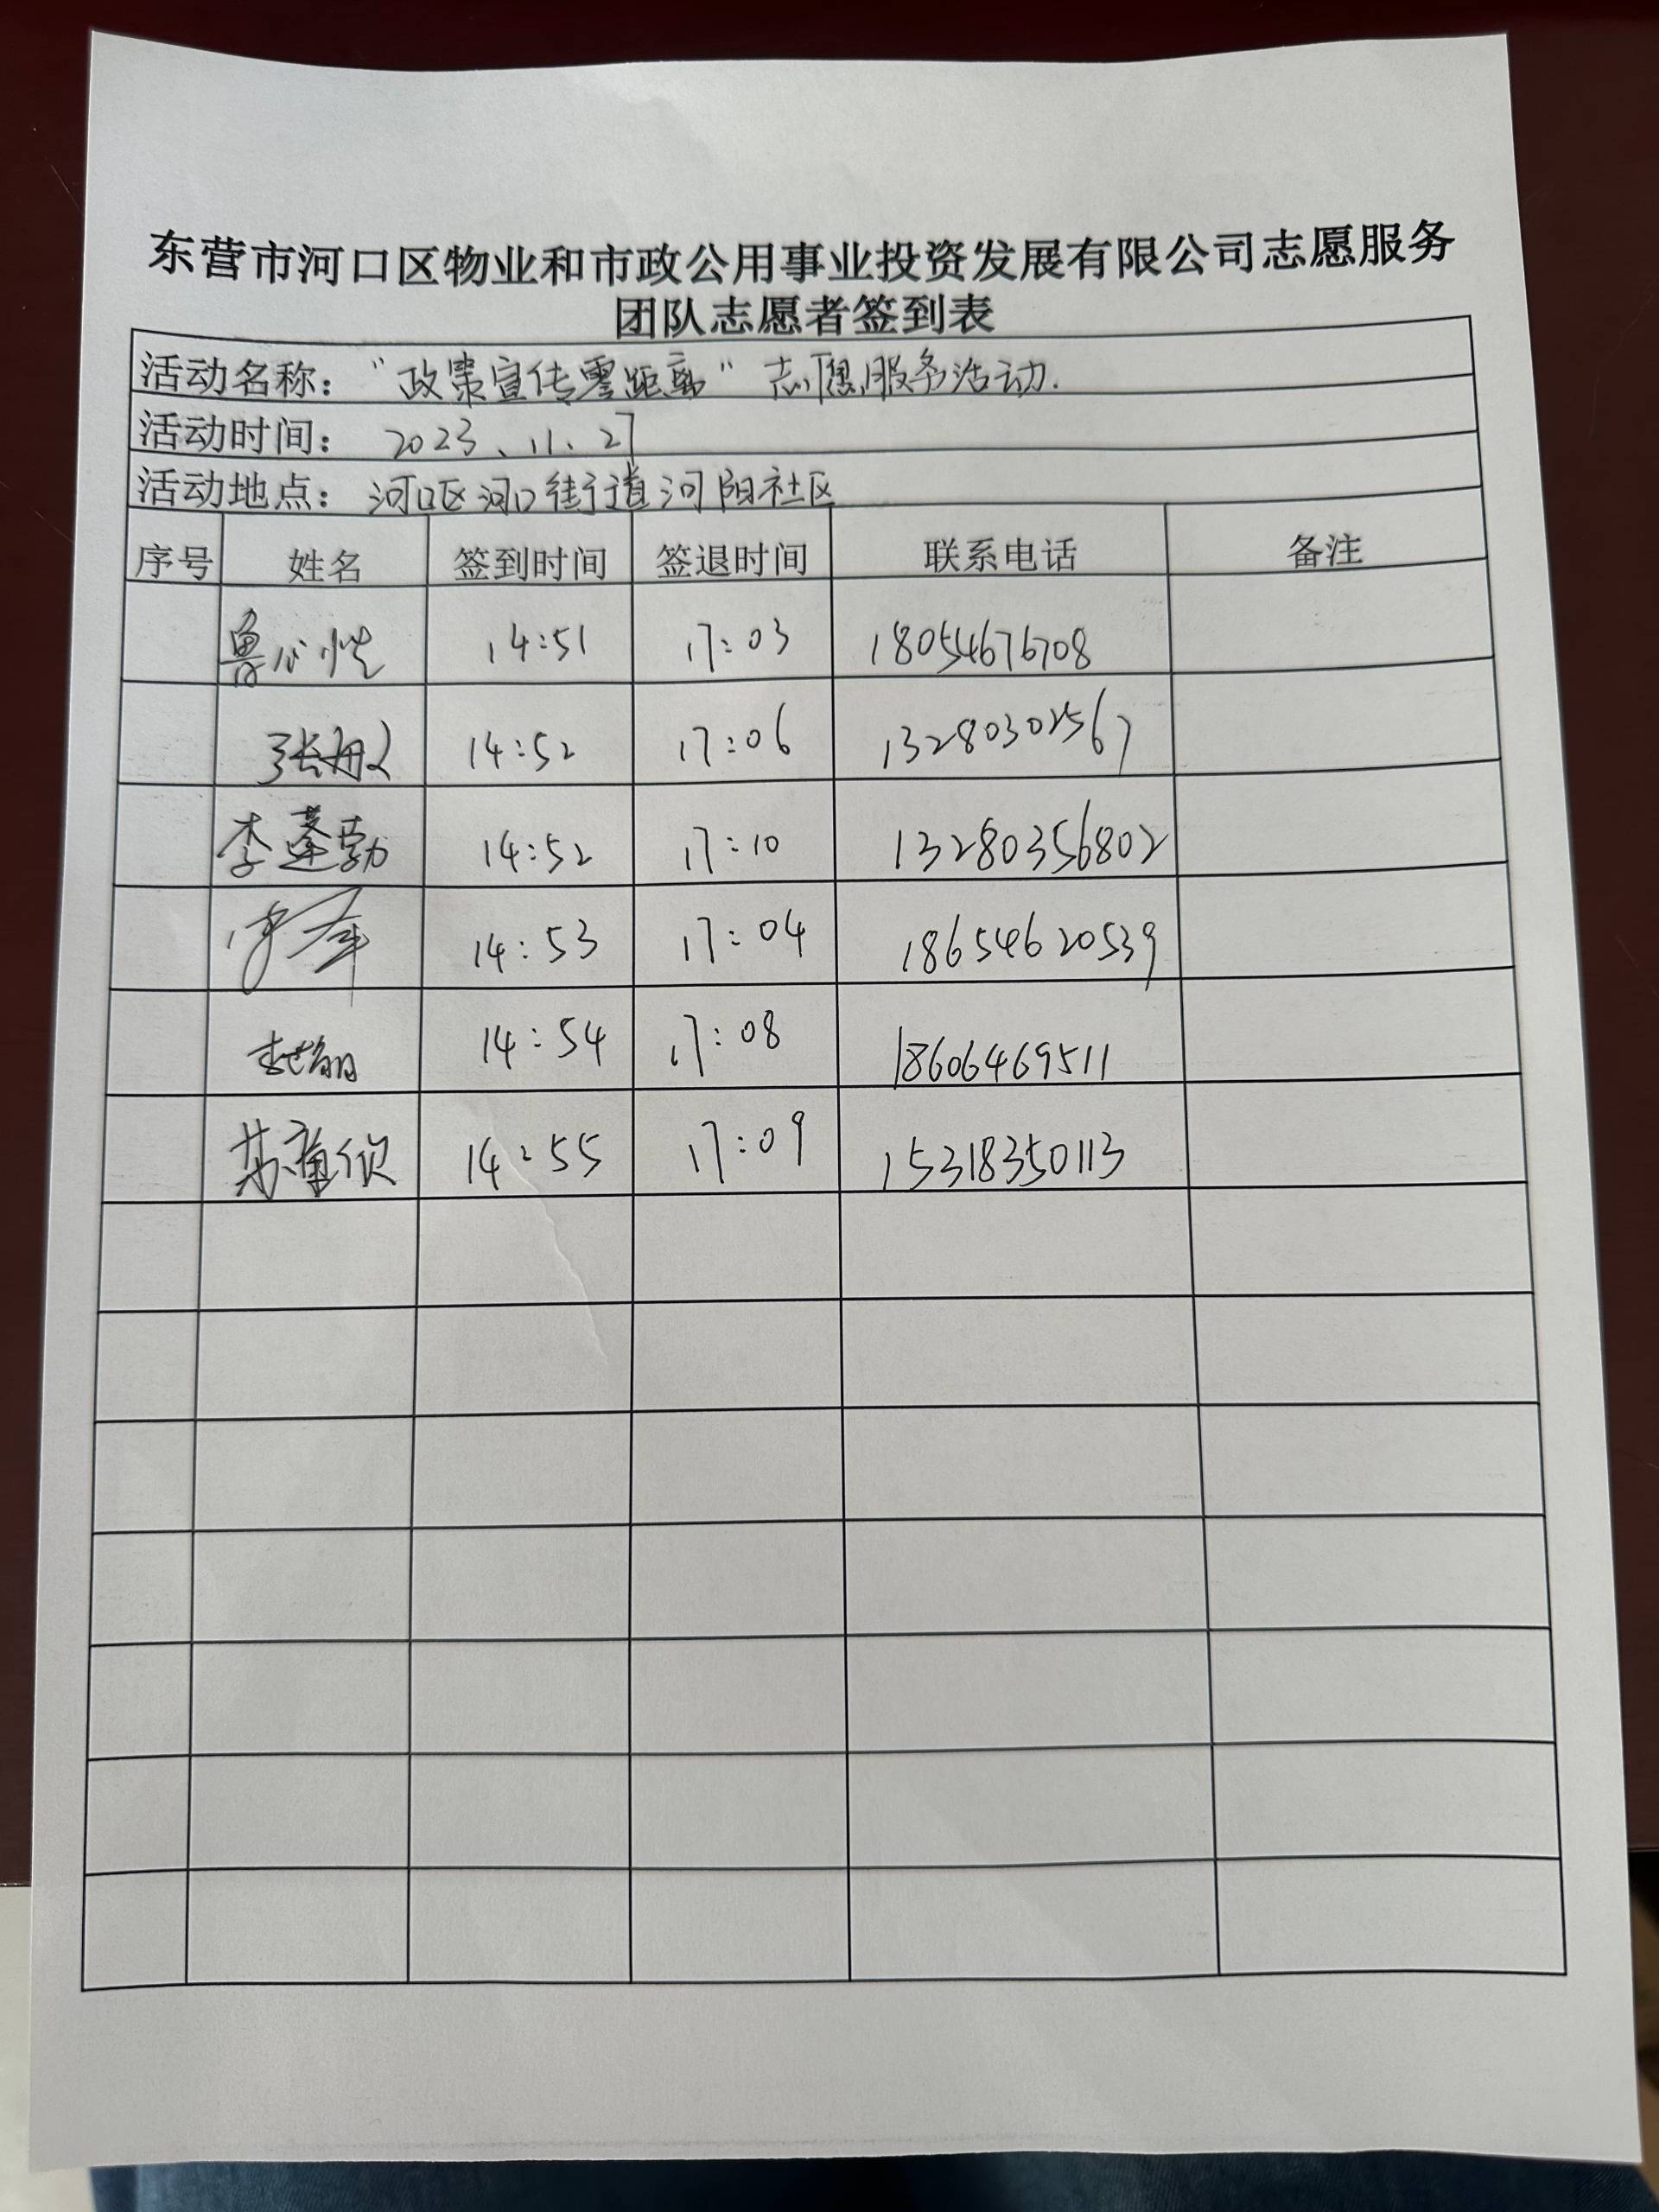 东营市河口区物业和市政公用事业投资发展有限公司志愿服务
团队志愿者签到表
活动名称："政策宣传零距离"志愿服务活动.
活动时间：2023、11、27
活动地点：河口区河口街道河阳社区
序号 姓名 签到时间 签退时间 联系电话 备注
14:51 17:03 18054676708
14:52 17:06 13280302567
李蓬勃 14:52 17:10 13280356802
14:53 17:04 18654620539
14:54 17:08 18606469511
14:55 17:09 15318350113